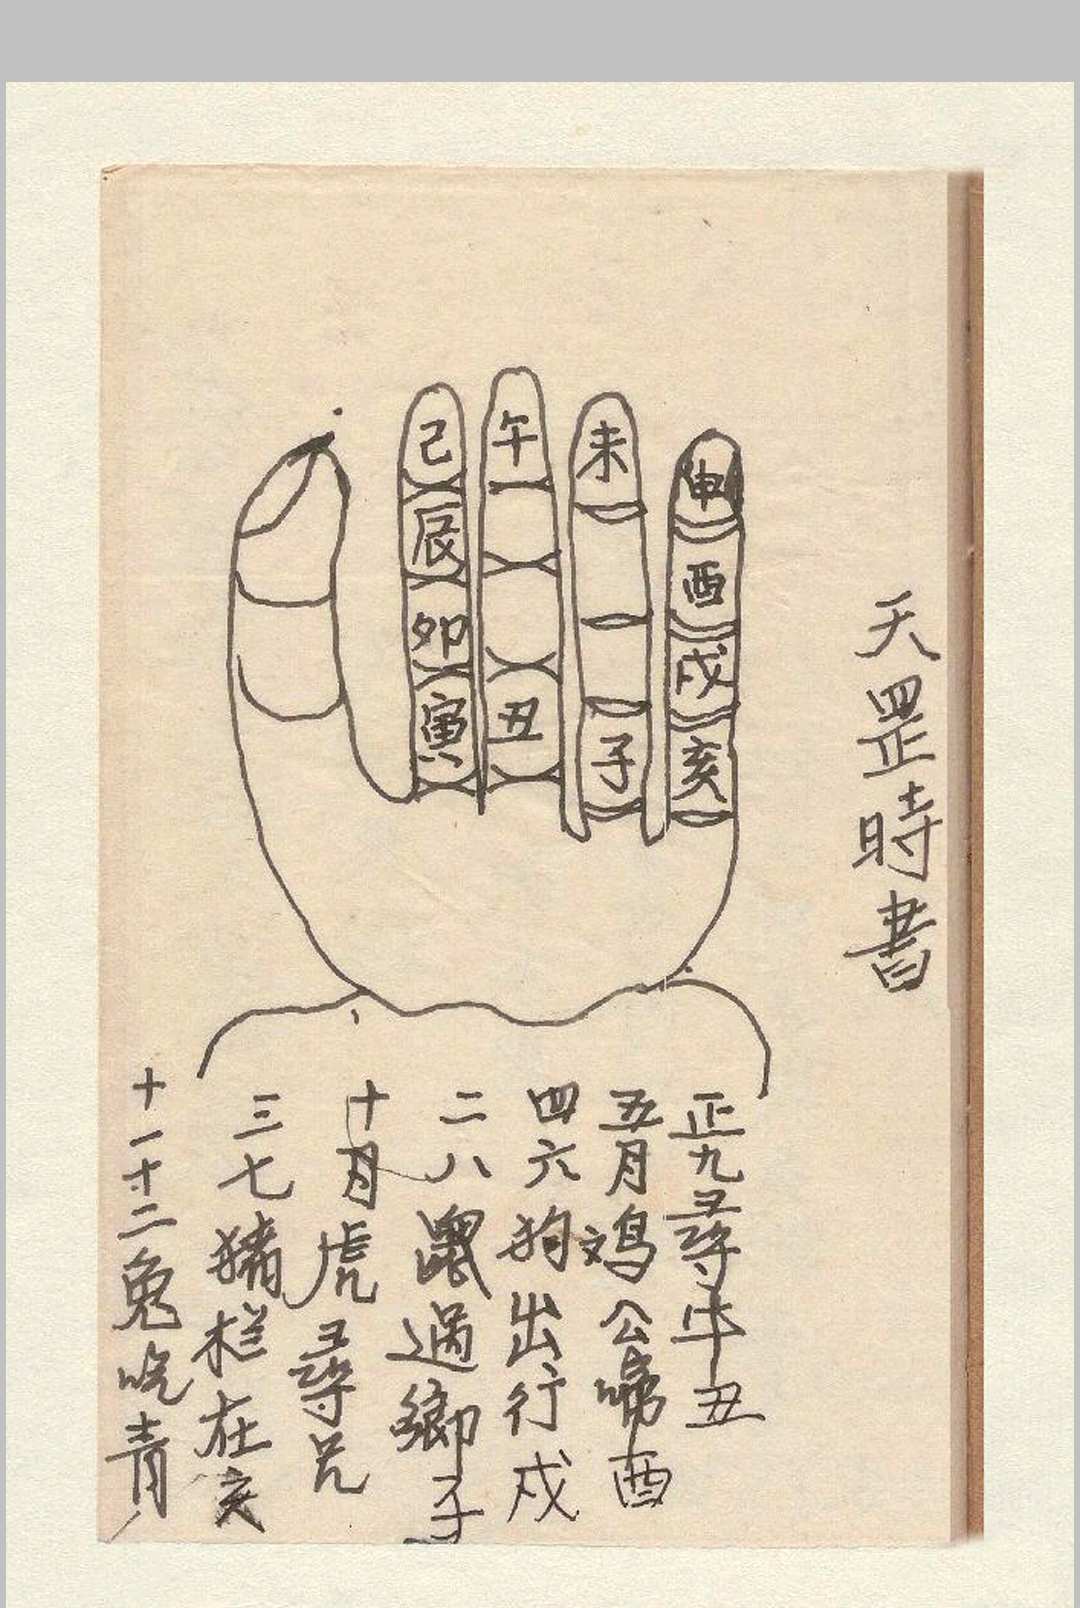 天罡時書
己 午 未 申
辰 酉
卯 戌
寅 丑 子 亥
正九尋牛丑
五月鸡公啼酉
四六狗出行戍
二八鼠過鄉子
十月虎尋兄
三七猪栏在亥
十一十二兔吃青